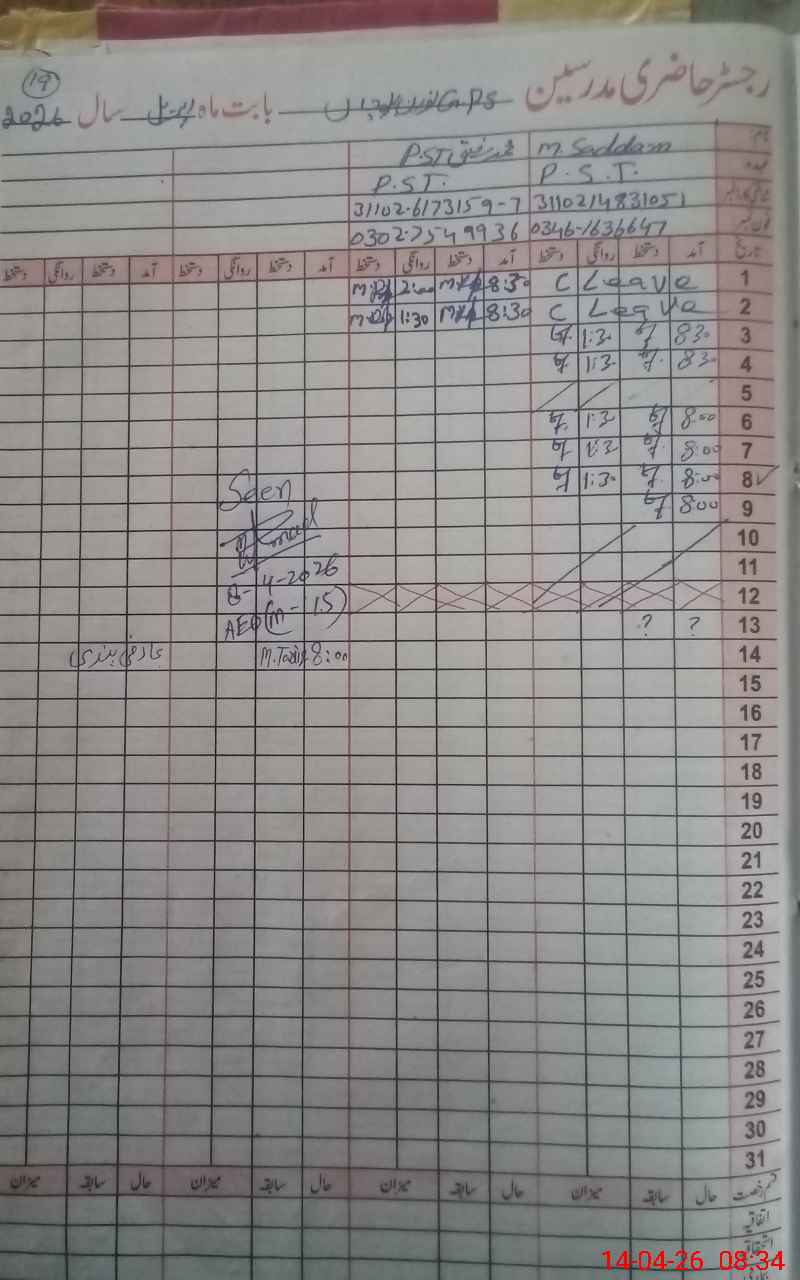 19
رجسٹر حاضری مدرسین GPS بابت ماہ اپریل سال 2026
نام M. Saddam محمد رفیق PST
عہدہ P. S. T. P.S.T.
3110214831051 31102-6173159-7
فون نمبر 0346-1636647 0302-7549936
تاریخ آمد دستخط روانگی دستخط آمد دستخط روانگی دستخط آمد دستخط روانگی دستخط آمد دستخط روانگی دستخط
1 C Leave 8:30 2:00
2 C Leave 8:30 1:30
3 830 1:3
4 830 1:3
5
6 8:00 1:3
7 8:00 1:3
8 8:00 1:30
9 8:00
Seen
10
11
8-4-2026
12
AEO (M-15)
13 ? ?
14 M. Tariq 8:00 عارضی
15
16
17
18
19
20
21
22
23
24
25
26
27
28
29
30
31
قسم رخصت حال سابقہ میزان حال سابقہ میزان حال سابقہ میزان حال سابقہ میزان
اتفاقیہ
استحقاقیہ
بیماری
14-04-26 08:34